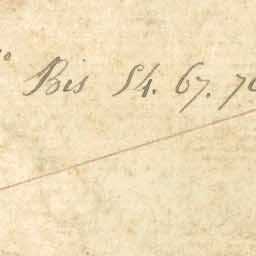 Bis 54. 67.